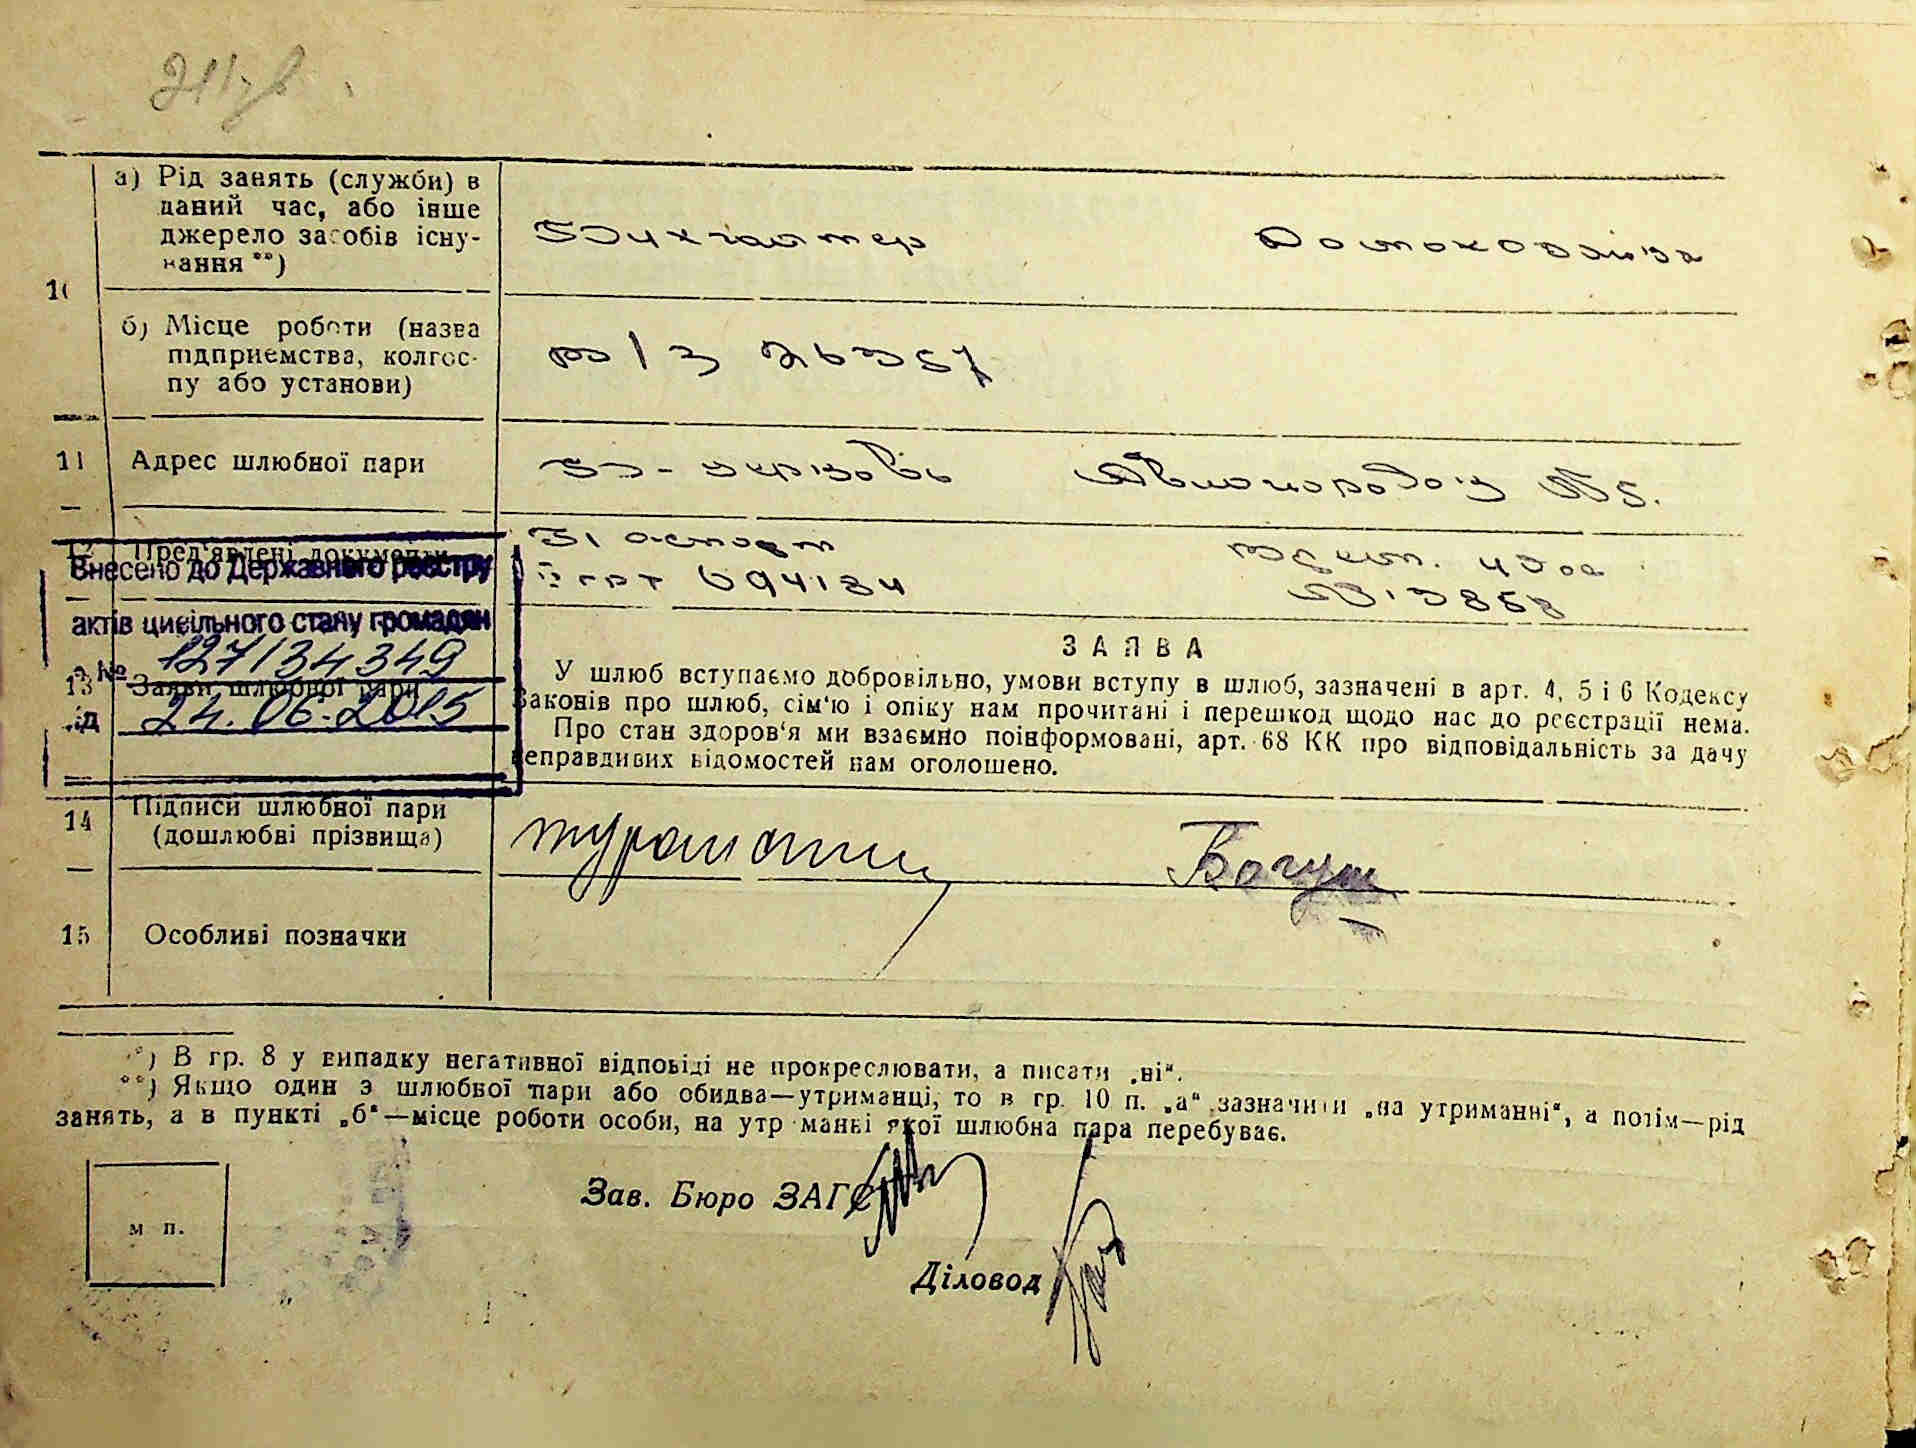 а) Рід занять (служби) в
даний час, або інше
джерело засобів існу-
вання **)
Бухгалтер Домохозяйка
10
б) Місце роботи (назва
підприємства, колгос-
пу або установи)
п/я 26357
11 Адрес шлюбної пари
обл.
12 Пред'явлені документи
паспорт
694184
Внесено до Державного реєстру
актів цивільного стану громадян
№ 127/34349
від 24.06.2015
13 Заяви шлюбної пари
ЗАЯВА
У шлюб вступаємо добровільно, умови вступу в шлюб, зазначені в арт. 4, 5 і 6 Кодексу
Законів про шлюб, сім'ю і опіку нам прочитані і перешкод щодо нас до реєстрації нема.
Про стан здоров'я ми взаємно поінформовані, арт. 68 КК про відповідальність за дачу
неправдивих відомостей нам оголошено.
14 Підписи шлюбної пари
(дошлюбні прізвища)
Богуш
15 Особливі позначки
*) В гр. 8 у випадку негативної відповіді не прокреслювати, а писати „ні“.
**) Якщо один з шлюбної пари або обидва—утриманці, то в гр. 10 п. „а“ зазначити „на утриманні“, а потім—рід
занять, а в пункті „б“—місце роботи особи, на утриманні якої шлюбна пара перебуває.
Зав. Бюро ЗАГС
м п.
Діловод